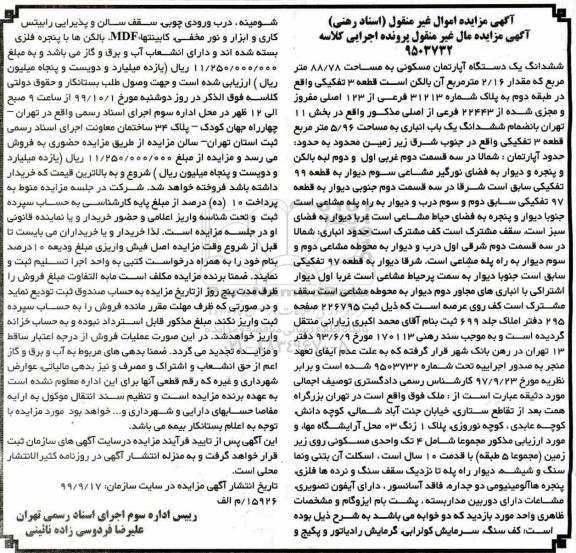 آگهی مزایده اموال غیر منقول (اسناد رهنی)
آگهی مزایده مال غیر منقول پرونده اجرایی کلاسه
۹۵۰۳۷۳۲
ششدانگ یک دستگاه آپارتمان مسکونی به مساحت ۸۸/۷۸ متر
مربع که مقدار ۲/۱۶ مترمربع آن بالکن است قطعه ۳ تفکیکی واقع
در طبقه دوم به پلاک شماره ۳۱۲۱۳ فرعی از ۱۲۳ اصلی مفروز
و مجزی شده از ۲۲۴۴۳ فرعی از اصلی مذکور واقع در بخش ۱۱
تهران بانضمام ششدانگ یک باب انباری به مساحت ۵/۹۶ متر مربع
قطعه ۳ تفکیکی واقع در جنوب شرق زیر زمین محدود به حدود:
حدود آپارتمان : شمالا در سه قسمت دوم غربی اول و دوم لبه بالکن
و پنجره و دیوار به فضای نورگیر مشاعی سوم دیوار به قطعه ۹۹
تفکیکی سابق است شرقا در سه قسمت دوم جنوبی دیوار به قطعه
۹۷ تفکیکی سابق دوم و سوم درب و دیوار به راه پله مشاعی است
جنوبا دیوار و پنجره به فضای حیاط مشاعی است غربا دیوار به فضای
سبز است، سقف مشترک است کف مشترک است حدود انباری: شمالا
در سه قسمت دوم شرقی اول درب و دیوار به محوطه مشاعی دوم و
سوم دیوار به راه پله مشاعی است. شرقا دیوار به قطعه ۹۷ تفکیکی
سابق است جنوبا دیوار به سمت زیرحیاط مشاعی است غربا اول دیوار
اشتراکی با انباری های مجاور دوم دیوار به محوطه مشاعی است سقف
مشترک است کف روی عرصه است که ذیل ثبت ۲۲۶۷۹۵ صفحه
۲۹۵ دفتر املاک جلد ۶۹۹ ثبت بنام آقای محمد اکبری زیارانی منتقل
گردیده است و به موجب سند رهنی ۱۷۰۱۱۳ مورخ ۹۳/۶/۹ دفتر
۱۳ تهران در رهن بانک شهر قرار گرفته که به علت عدم ایفای تعهد
منجر به صدور اجراییه تحت شماره ۹۵۰۳۷۳۲ شده است و برابر
نظریه مورخ ۹۷/۹/۲۳ کارشناس رسمی دادگستری توصیف اجمالی
مورد دثیقه عبارت است از : ملک فوق واقع است در تهران بزرگراه
همت بعد از تقاطع ستاری، خیابان جنت آباد شمالی، کوچه دانش،
کوچه عابدی ، کوچه نوروزی، پلاک ۱ زنگ ۰۳ محل آرایشگاه مها، و
مورد ارزیابی مذکور مجموعا شامل ۴ تک واحدی مسکونی روی زیر
زمین (مجموعا ۵ طبقه) با قدمت ۱۰ سال است ، اسکلت آن بتنی ونما
سنگ و شیشه، دیوار راه پله تا نزدیک سقف سنگ و نرده ها فلزی،
پنجره هاآلومینیومی دو جداره، فاقد آسانسور ، دارای آیفون تصویری،
مشاعات دارای دوربین مداربسته ، پشت بام ایزوگام و مشخصات
ظاهری واحد مورد بازدید که دو خوابه می باشد به شرح ذیل بوده
است: کف سنگ، سرمایش کولرابی، گرمایش رادیاتور و پکیج و
شومینه، درب ورودی چوبی، سقف سالن و پذیرایی رابیتس
کاری و ابزار و نور مخفی، کابینتها،MDF، بالکن ها با پنجره فلزی
بسته شده اند و دارای انشعاب آب و برق و گاز می باشد و به مبلغ
۱۱/۲۵۰/۰۰۰/۰۰۰ ریال (یازده میلیارد و دویست و پنجاه میلیون
ریال ) ارزیابی شده است و جهت وصول طلب بستانکار و حقوق دولتی
کلاسه فوق الذکر در روز دوشنبه مورخ ۹۹/۱۰/۱ از ساعت ۹ صبح
الی ۱۲ ظهر در محل اداره سوم اجرای اسناد رسمی واقع در تهران –
چهارراه جهان کودک – پلاک ۳۴ ساختمان معاونت اجرای اسناد رسمی
ثبت استان تهران– سالن مزایده از طریق مزایده حضوری به فروش
می رسد و مزایده از مبلغ ۱۱/۲۵۰/۰۰۰/۰۰۰ ریال (یازده میلیارد
و دویست و پنجاه میلیون ریال ) شروع و به بالاترین قیمت که خریدار
داشته باشد فروخته خواهد شد. شرکت در جلسه مزایده منوط به
پرداخت ۱۰ (ده) درصد از مبلغ پایه کارشناسی به حساب سپرده
ثبت و تحت شناسه واریز اعلامی و حضور خریدار و یا نماینده قانونی
او در جلسه مزایده است. لذا خریدار و یا خریداران می بایست تا
قبل از شروع وقت مزایده اصل فیش واریزی مبلغ ودیعه ۱۰درصد
بنام خود را به همراه درخواست کتبی به واحد اجرا تسلیم ثبت و
نمایند. ضمنا برنده مزایده مکلف است مابه التفاوت مبلغ فروش را
ظرف مدت پنج روز ازتاریخ مزایده به حساب صندوق ثبت تودیع نماید
و در صورتی که ظرف مهلت مقرر مانده فروش را به حساب سپرده
ثبت واریز نکند، مبلغ مذکور قابل استرداد نبوده و به حساب خزانه
واریز خواهدشد. در این صورت عملیات فروش از درجه اعتبار ساقط
و مزایده تجدید می گردد. ضمنا بدهی های مربوط به آب و برق و گاز
اعم از حق انشعاب و اشتراک و مصرف و نیز بدهی مالیاتی، عوارض
شهرداری و غیره که رقم قطعی آنها برای این اداره معلوم نشده است
به عهده برنده مزایده است و تنظیم سند انتقال موکول به ارایه
مفاصا حسابهای دارایی و شهرداری و... خواهد بود مورد مزایده با
توجه به اعلام بستانکار بیمه می باشد.
این آگهی پس از تایید فرآیند مزایده درسایت آگهی های سازمان ثبت
قرار خواهد گرفت و به منزله انتشار آگهی در روزنامه کثیرالانتشار
محلی است.
تاریخ انتشار آگهی مزایده در سایت سازمان: ۹۹/۹/۱۷
۱۵۹۲۶/م الف
رییس اداره سوم اجرای اسناد رسمی تهران
علیرضا فردوسی زاده نائینی